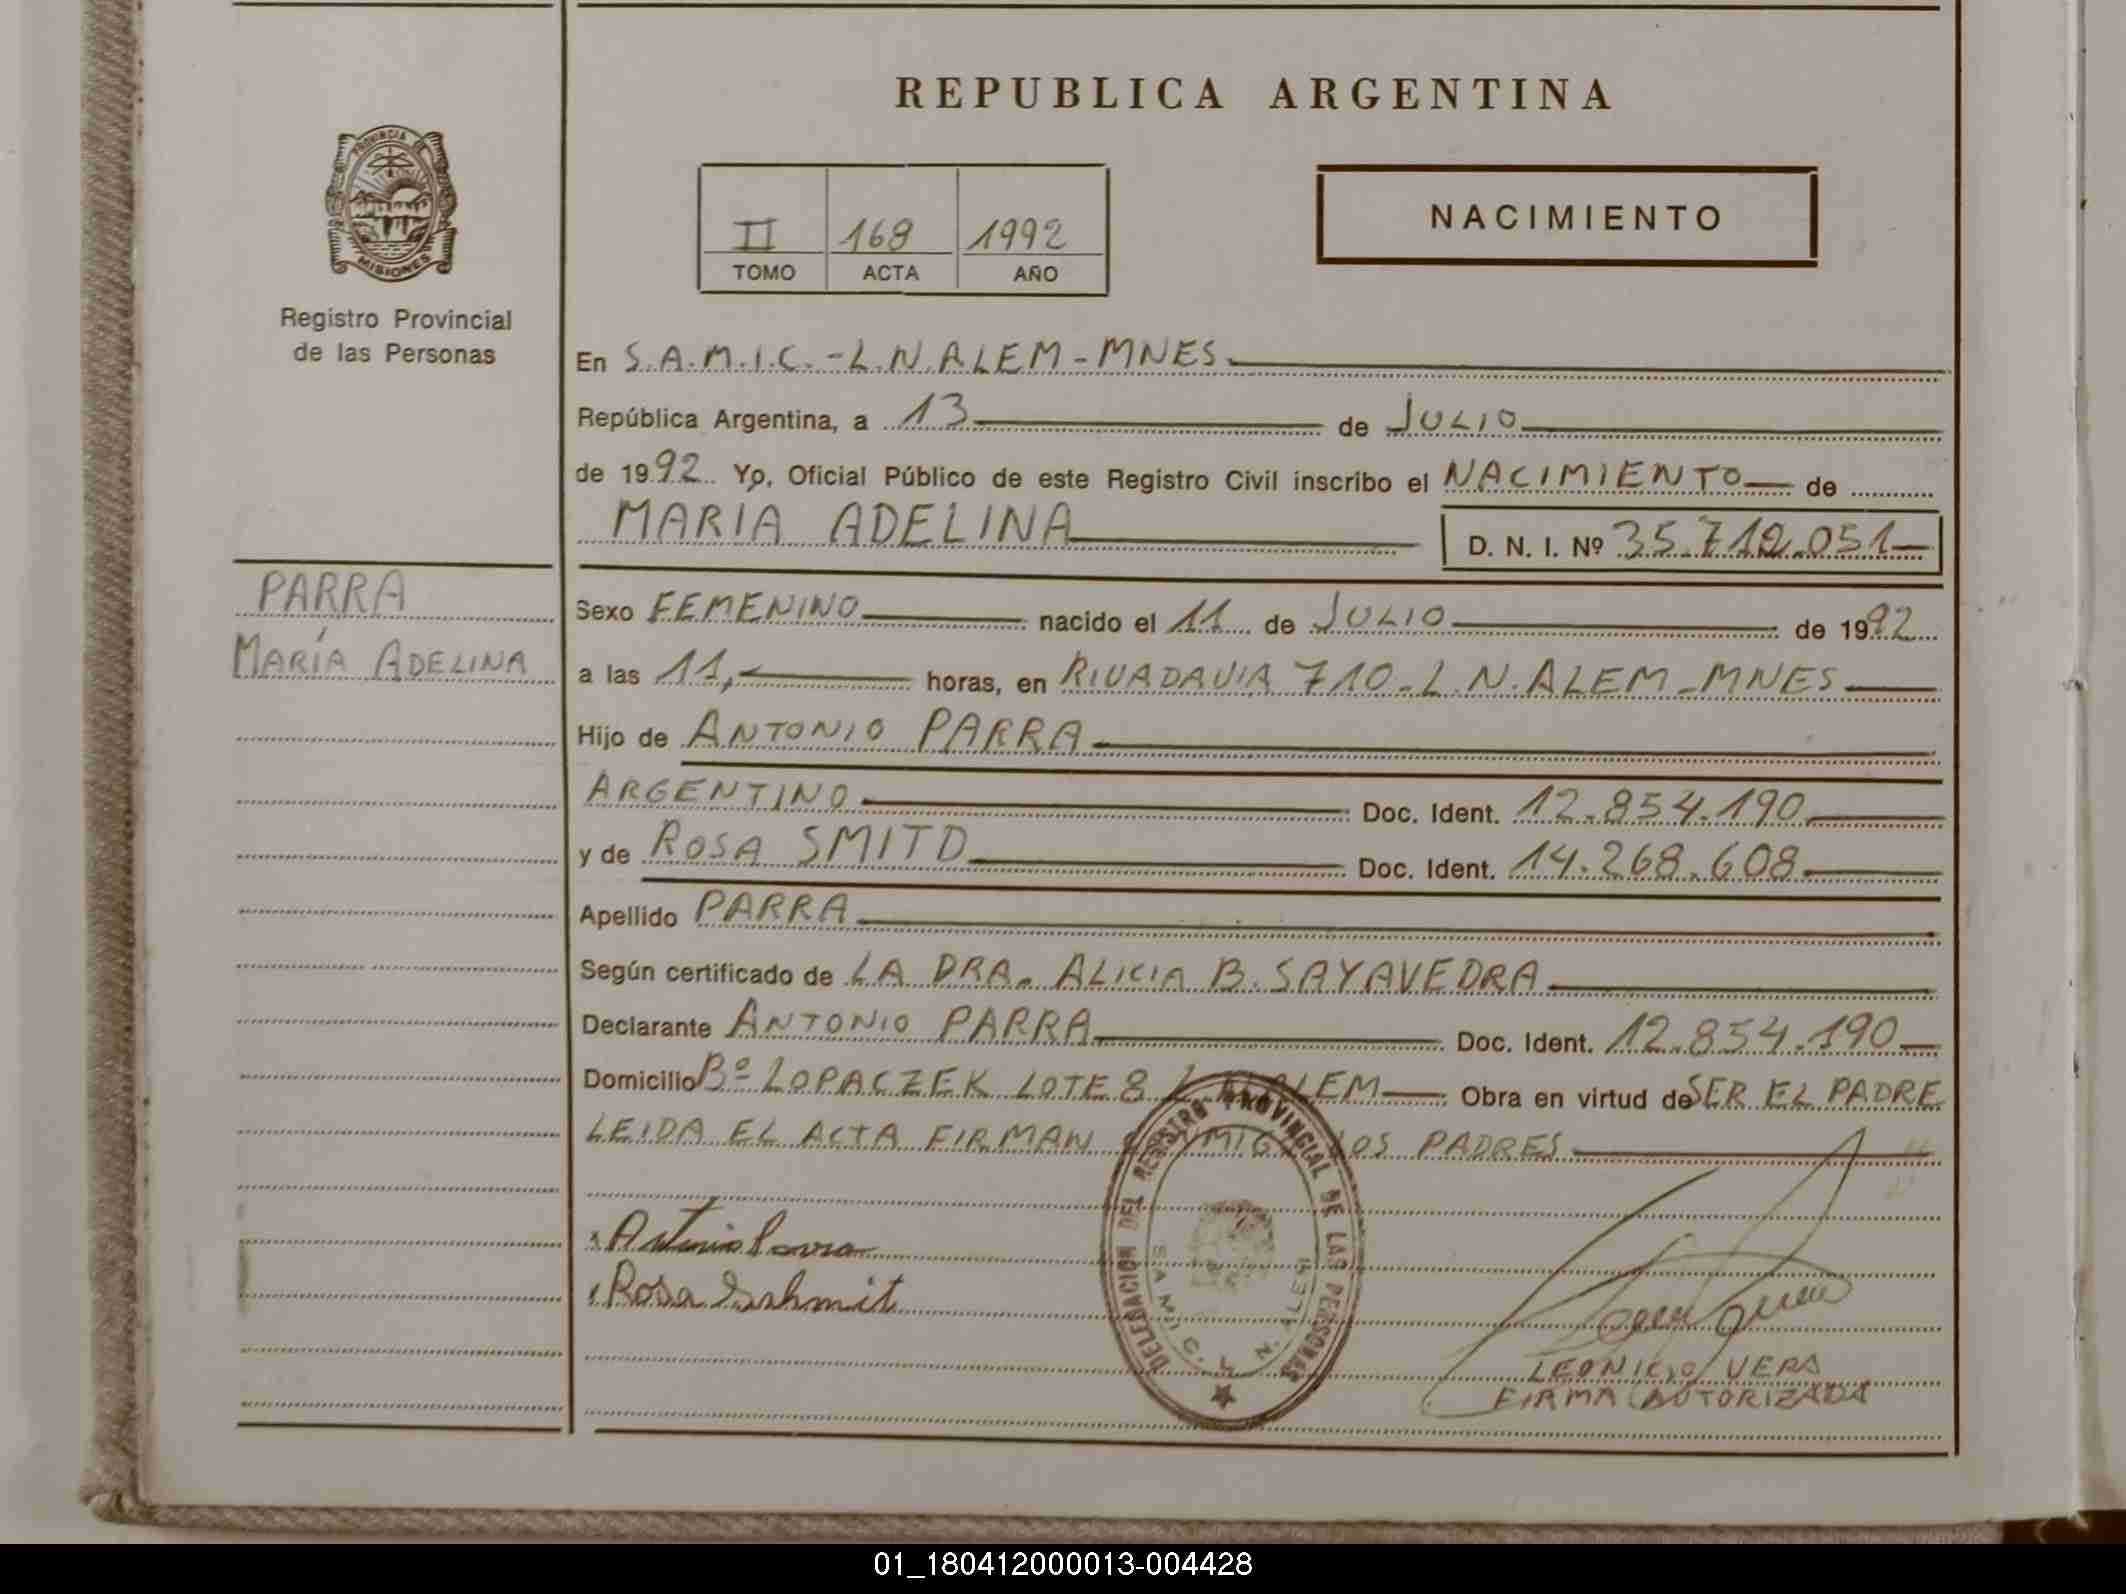 REPUBLICA ARGENTINA
PROVINCIA
MISIONES
Registro Provincial
de las Personas
NACIMIENTO
II 168 1992
TOMO ACTA AÑO
En S.A.M.I.C.-L.N.ALEM-MNES
República Argentina, a 13 de JULIO
de 1992. Yo, Oficial Público de este Registro Civil inscribo el NACIMIENTO de
MARIA ADELINA D. N. I. Nº 35.712.051
PARRA
MARÍA ADELINA
Sexo FEMENINO nacido el 11 de JULIO de 1992
a las 11, horas, en RIVADAVIA 710-L.N.ALEM-MNES
Hijo de ANTONIO PARRA
ARGENTINO Doc. Ident. 12.854.190
y de ROSA SMITD Doc. Ident. 14.268.608
Apellido PARRA
Según certificado de LA DRA. ALICIA B. SAYAVEDRA
Declarante ANTONIO PARRA Doc. Ident. 12.854.190
Domicilio Bº LOPACZEK LOTE 8 L.N.ALEM Obra en virtud de SER EL PADRE
LEIDA EL ACTA FIRMAN CONMIGO LOS PADRES
Antonio Parra
Rosa Schmit
DELEGACION DEL REGISTRO PROVINCIAL DE LAS PERSONAS
S.A.M.I.C. L. N. ALEM
LEONICIO VERA
FIRMA AUTORIZADA
01_180412000013-004428